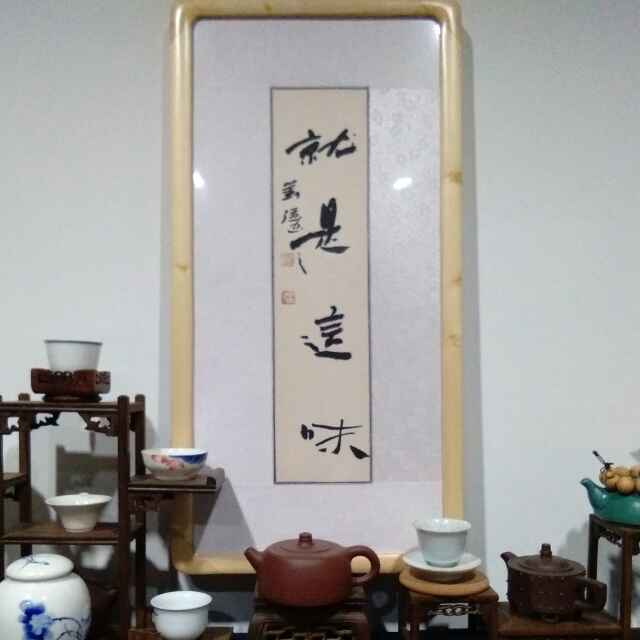 就是這味